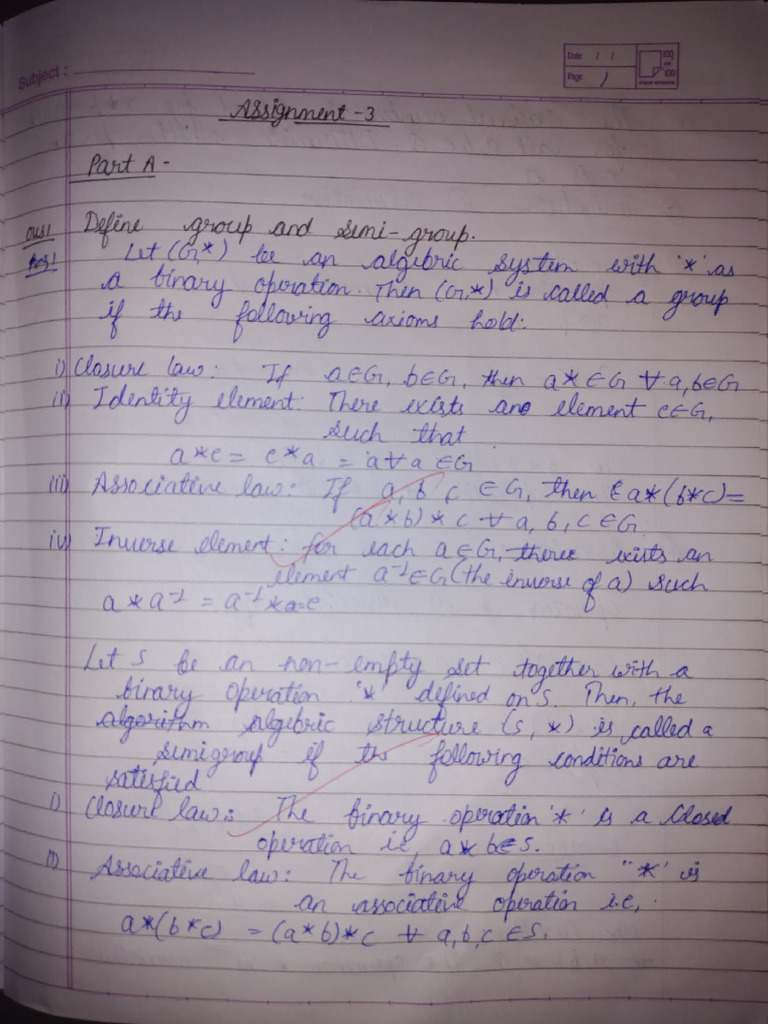 Subject :
Date / /
Page 1
Assignment -3
Part A -
Ques1 Define group and semi-group.
Ans1 Let (G,*) be an algebric system with '*' as
a binary operation. Then (G,*) is called a group
if the following axioms hold:
i) Closure law: If a∈G, b∈G, then a*∈G ∀ a,b∈G
ii) Identity element: There exists ane element e∈G,
such that
a*e = e*a = a ∀ a ∈G
iii) Associative law: If a, b c ∈ G, then a*(b*c)=
(a*b)*c ∀ a, b, c ∈G
iv) Inverse element: for each a∈G, there exists an
element a⁻¹∈G (the inverse of a) such
a * a⁻¹ = a⁻¹*a=e
Let S be an non-empty set together with a
binary operation '*' defined on S. Then, the
algorithm algebric structure (S, *) is called a
semigroup if the following conditions are
satisfied
i) Closure law: The binary operation '*' is a Closed
operation ie, a*b∈S.
ii) Associative law: The binary operation "*' is
an associative operation i.e,.
a*(b*c) = (a*b)*c ∀ a,b,c ∈S.